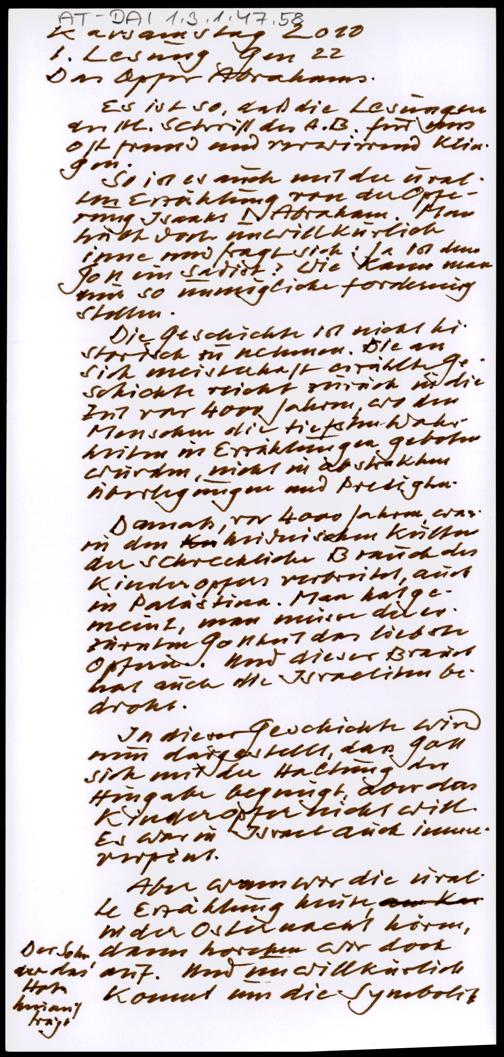 AT-DAI 1.3.1.47.58
Karsamstag 2010
1. Lesung Gen 22
Das Opfer Abrahams.
Es ist so, daß die Lesungen
der Hl. Schrift des A.B. für uns
oft fremd und verwirrend klin-
gen.
So ist es auch mit der ural-
ten Erzählung von der Opfe-
rung Isaaks d. Abraham. Man
hält doch unwillkürlich
inne und fragt sich: Ja ist denn
Gott ein Sadist? Wie kann man
nur so unmögliche Forderung
stellen.
Die Geschichte ist nicht hi-
storisch zu nehmen. Die an
sich meisterhaft erzählte Ge-
schichte reicht zurück in die
Zeit vor 4000 Jahren, wo den
Menschen die tiefsten Wahr-
heiten in Erzählungen geboten
wurden, nicht in abstrakten
Überlegungen und Predigten.
Damals, vor 4000 Jahren war
in den heidnischen Kulten
der schreckliche Brauch des
Kinderopfers verbreitet, auch
in Palästina. Man hat ge-
meint, man müsse der er-
zürnten Gottheit das liebste
opfern. Und dieser Brauch
hat auch die Israeliten be-
droht.
In dieser Geschichte wird
nun dargestellt, daß Gott
sich mit der Haltung der
Hingabe begnügt, aber das
Kinderopfer nicht will.
Es war in Israel auch immer
verpönt.
Aber wenn wir die ural-
te Erzählung heute,
in der Osternacht hören,
dann horchen wir doch
auf. Und unwillkürlich
kommt uns die Symbolik
Der Sohn
der das
Holz
hinauf
trägt